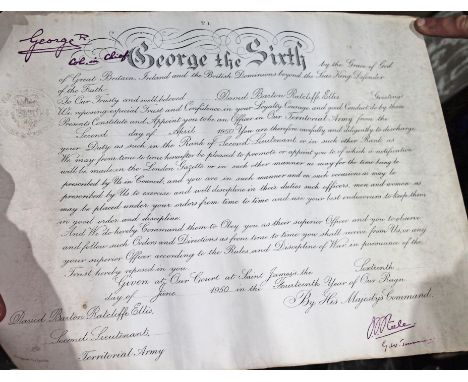 George R.
George the Sixth by the Grace of God
of Great Britain, Ireland and the British Dominions beyond the Seas King Defender
of the Faith
To Our Trusty and well beloved David Barton Ratcliffe Ellis, Greeting:
We reposing especial Trust and Confidence in your Loyalty Courage and good Conduct do by these
Presents Constitute and Appoint you to be an Officer in Our Territorial Army from the
Second day of April 1950 You are therefore carefully and diligently to discharge
your Duty as such in the Rank of Second Lieutenant or in such other Rank as
We may from time to time hereafter be pleased to promote or appoint you to of which a notification
will be made in the London Gazette or in such other manner as may for the time being be
prescribed by Us in Council, and you are in such manner and on such occasions as may be
prescribed by Us to exercise and well discipline in their duties such officers, men and women as
may be placed under your orders from time to time and use your best endeavours to keep them
in good order and discipline.
And We do hereby Command them to Obey you as their superior Officer and you to observe
and follow such Orders and Directions as from time to time you shall receive from Us, or any
your superior Officer according to the Rules and Discipline of War in pursuance of the
Trust hereby reposed in you
Given at Our Court at Saint James's the Sixteenth
day of June 1950 in the Fourteenth Year of Our Reign
By His Majesty's Command.
David Barton Ratcliffe Ellis,
Second Lieutenant,
Territorial Army